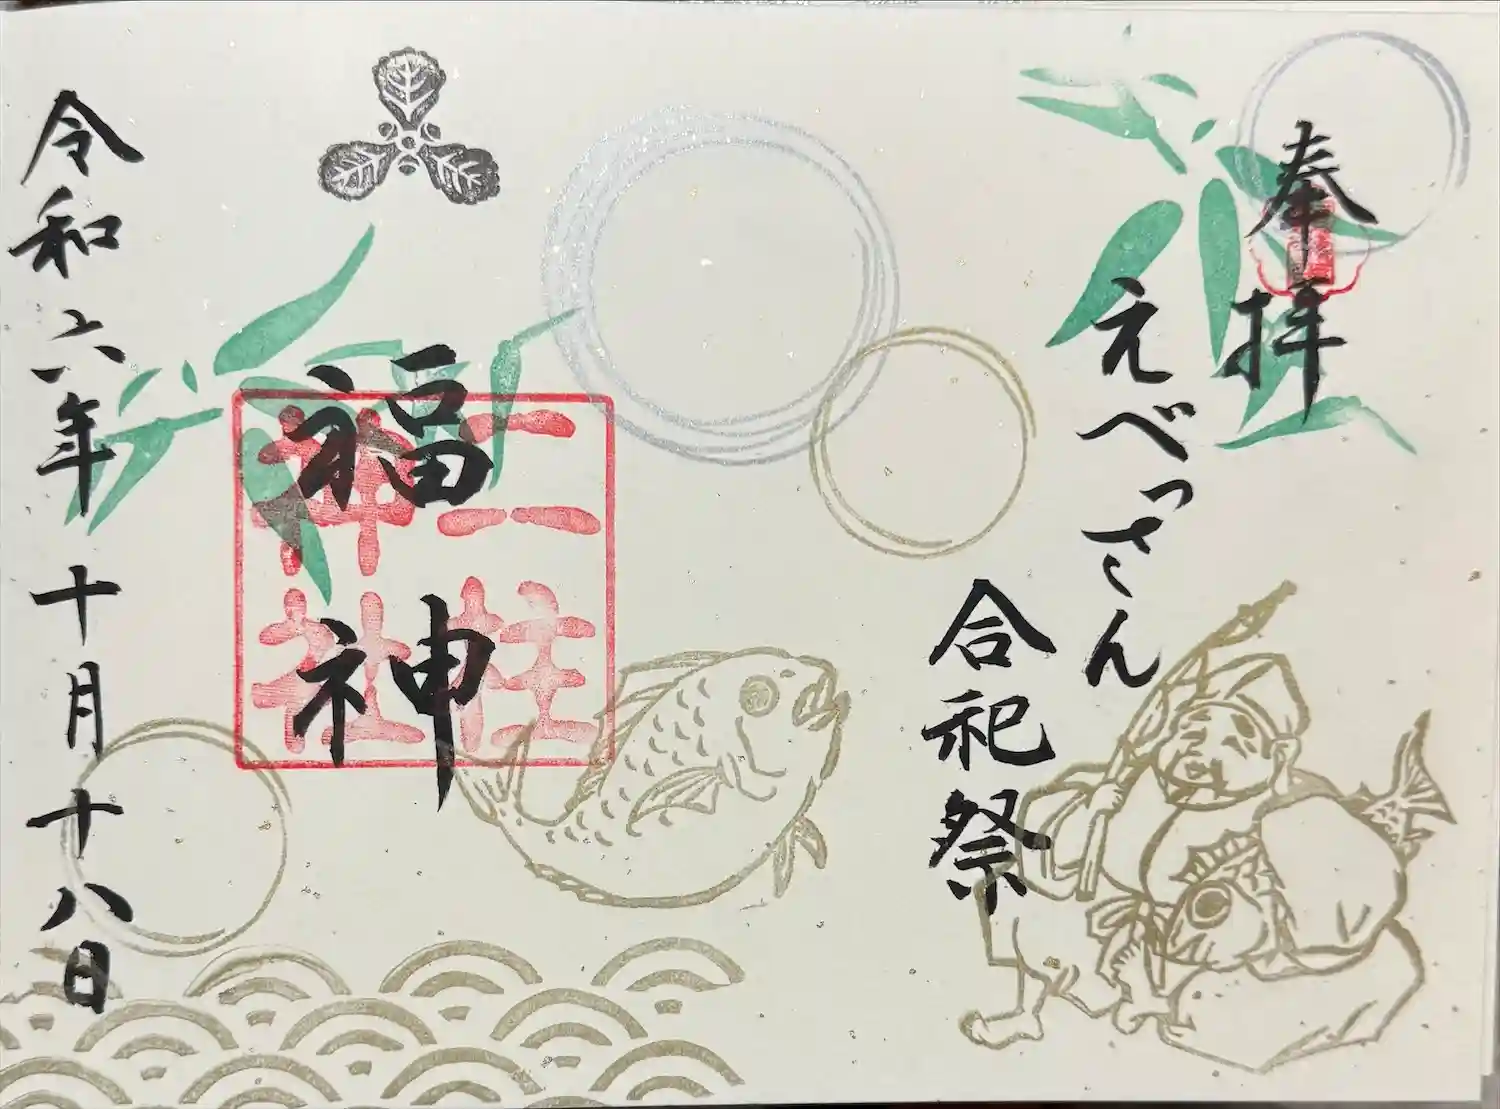 奉拝
えべっさん
合祀祭
福神
二柱神社
令和六年十月十八日